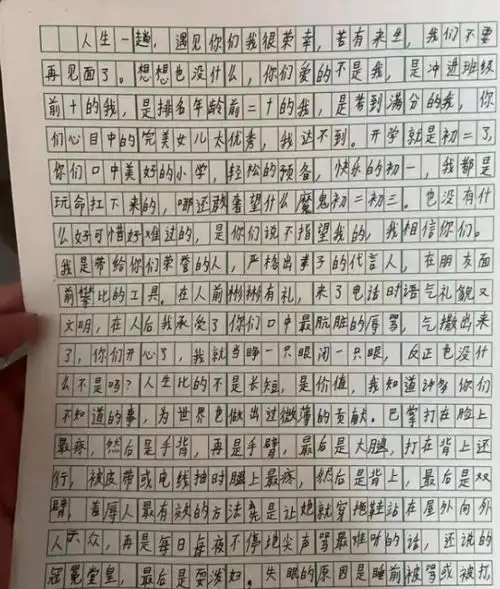 人生一趟，遇见你们我很荣幸，若有来生，我们不要
再见面了。想想也没什么，你们爱的不是我，是冲进班级
前十的我，是排名年龄前二十的我，是考到满分的我，你
们心目中的完美女儿太优秀，我达不到。开学就是初二了，
你们口中美好的小学，轻松的预备，快乐的初一，我都是
玩命扛下来的，哪还敢奢望什么魔鬼初二初三。也没有什
么好可惜好难过的，是你们说不指望我的，我相信你们。
我是带给你们荣誉的人，严格出事子的代言人，在朋友面
前攀比的工具。在人前彬彬有礼，来了电话时语气礼貌又
文明，在人后我承受了你们口中最肮脏的辱骂，气撒出来
了，你们开心了，我就当睁一只眼闭一只眼，反正也没什
么不是吗？人生比的不是长短，是价值，我知道许多你们
不知道的事，为世界也做出过微薄的贡献。巴掌打在脸上
最疼，然后是手背，再是手臂，最后是大腿，打在背上还
行，被皮带或电线抽时腿上最疼，然后是背上，最后是双
臂，羞辱人最有效的方法竟是让她就穿拖鞋站在屋外向外
人示众，再是每日每夜不停地尖声骂最难听的话，还说的
冠冕堂皇，最后是耍泼妇。失眠的原因是睡前被骂或被打，